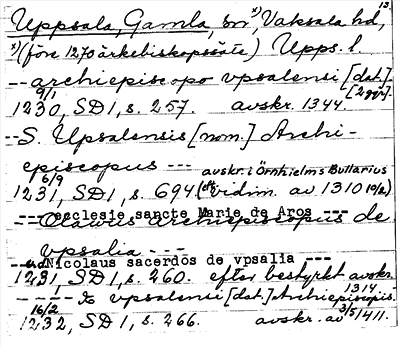 13
Uppsala, Gamla, sn, ¹⁾ Vaksala hd,
¹⁾ (före 1270 ärkebiskopssäte) Upps. l.
-- archiepiscopo vpsalensi [dat.]
[2 ggr].
9/1
1230, SD1, s. 257. avskr. 1344.
-- S. Upsalensis [nom.] Archi-
episcopus --- avskr. i Örnhielms Bullarius
6/9
1231, SD1, s. 694 (vidim. av 1310 10/2)
--- ecclesie sancte Marie de Aros ---
-- Olawus Archiepiscopus de
vpsalia ---
--- Nicolaus sacerdos de vpsalia ---
1231, SD1, s. 260. efter bestyrkt avskr.
1314
----- vpsalensi [dat.] Archiepiscopis.
16/2
1232, SD1, s. 266. avskr. av 3/5 1411.